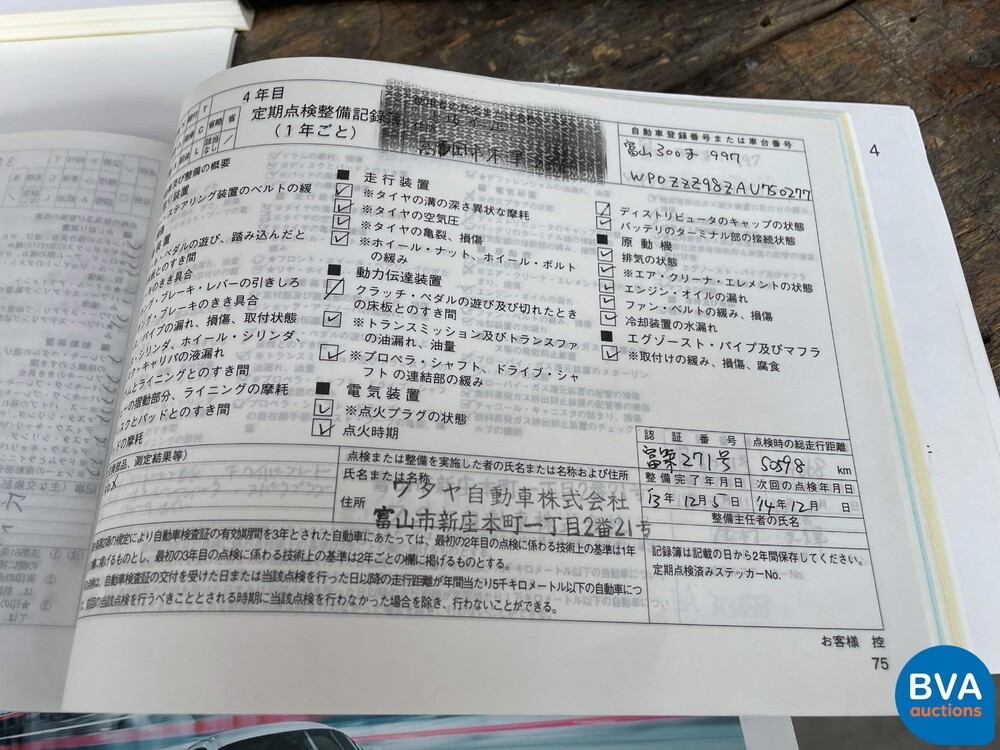 4年目
定期点検整備記録簿
(1年ごと)
自動車登録番号または車台番号
富山 300 997
WP0ZZZ98ZAU750277
4
及び整備の概要
ステアリング装置のベルトの緩
ペダルの遊び、踏み込んだと
とのすき間
のきき具合
ブレーキ・レバーの引きしろ
ブレーキのきき具合
パイプの漏れ、損傷、取付状態
シリンダ、ホイール・シリンダ、
キャリパの液漏れ
ムとライニングとのすき間
の摺動部分、ライニングの摩耗
スクとパッドとのすき間
ドの摩耗
■ 走行装置
※タイヤの溝の深さ異状な摩耗
※タイヤの空気圧
※タイヤの亀裂、損傷
※ホイール・ナット、ホイール・ボルト
の緩み
■ 動力伝達装置
クラッチ・ペダルの遊び及び切れたとき
の床板とのすき間
※トランスミッション及びトランスファ
の油漏れ、油量
※プロペラ・シャフト、ドライブ・シャ
フトの連結部の緩み
■ 電気装置
※点火プラグの状態
点火時期
ディストリビュータのキャップの状態
バッテリのターミナル部の接続状態
■ 原動機
排気の状態
※エア・クリーナ・エレメントの状態
エンジン・オイルの漏れ
ファン・ベルトの緩み、損傷
冷却装置の水漏れ
■ エグゾースト・パイプ及びマフラ
※取付けの緩み、損傷、腐食
部品、測定結果等)
点検または整備を実施した者の氏名または名称および住所
氏名または名称
ワタヤ自動車株式会社
住所
富山市新庄本町一丁目2番21号
認証番号
点検時の総走行距離
富第271号
50598 km
整備完了年月日
次回の点検年月日
'13年12月5日
'14年12月 日
整備主任者の氏名
2項の規定により自動車検査証の有効期間を3年とされた自動車にあたっては、最初の2年目の点検に係わる技術上の基準は1年
に掲げるものとし、最初の3年目の点検に係わる技術上の基準は2年ごとの欄に掲げるものとする。
は、自動車検査証の交付を受けた日または当該点検を行った日以降の走行距離が年間当たり5千キロメートル以下の自動車につ
前回の当該点検を行うべきこととされる時期に当該点検を行わなかった場合を除き、行わないことができる。
記録簿は記載の日から2年間保存してください。
定期点検済みステッカーNo.
お客様 控
75
BVA
auctions